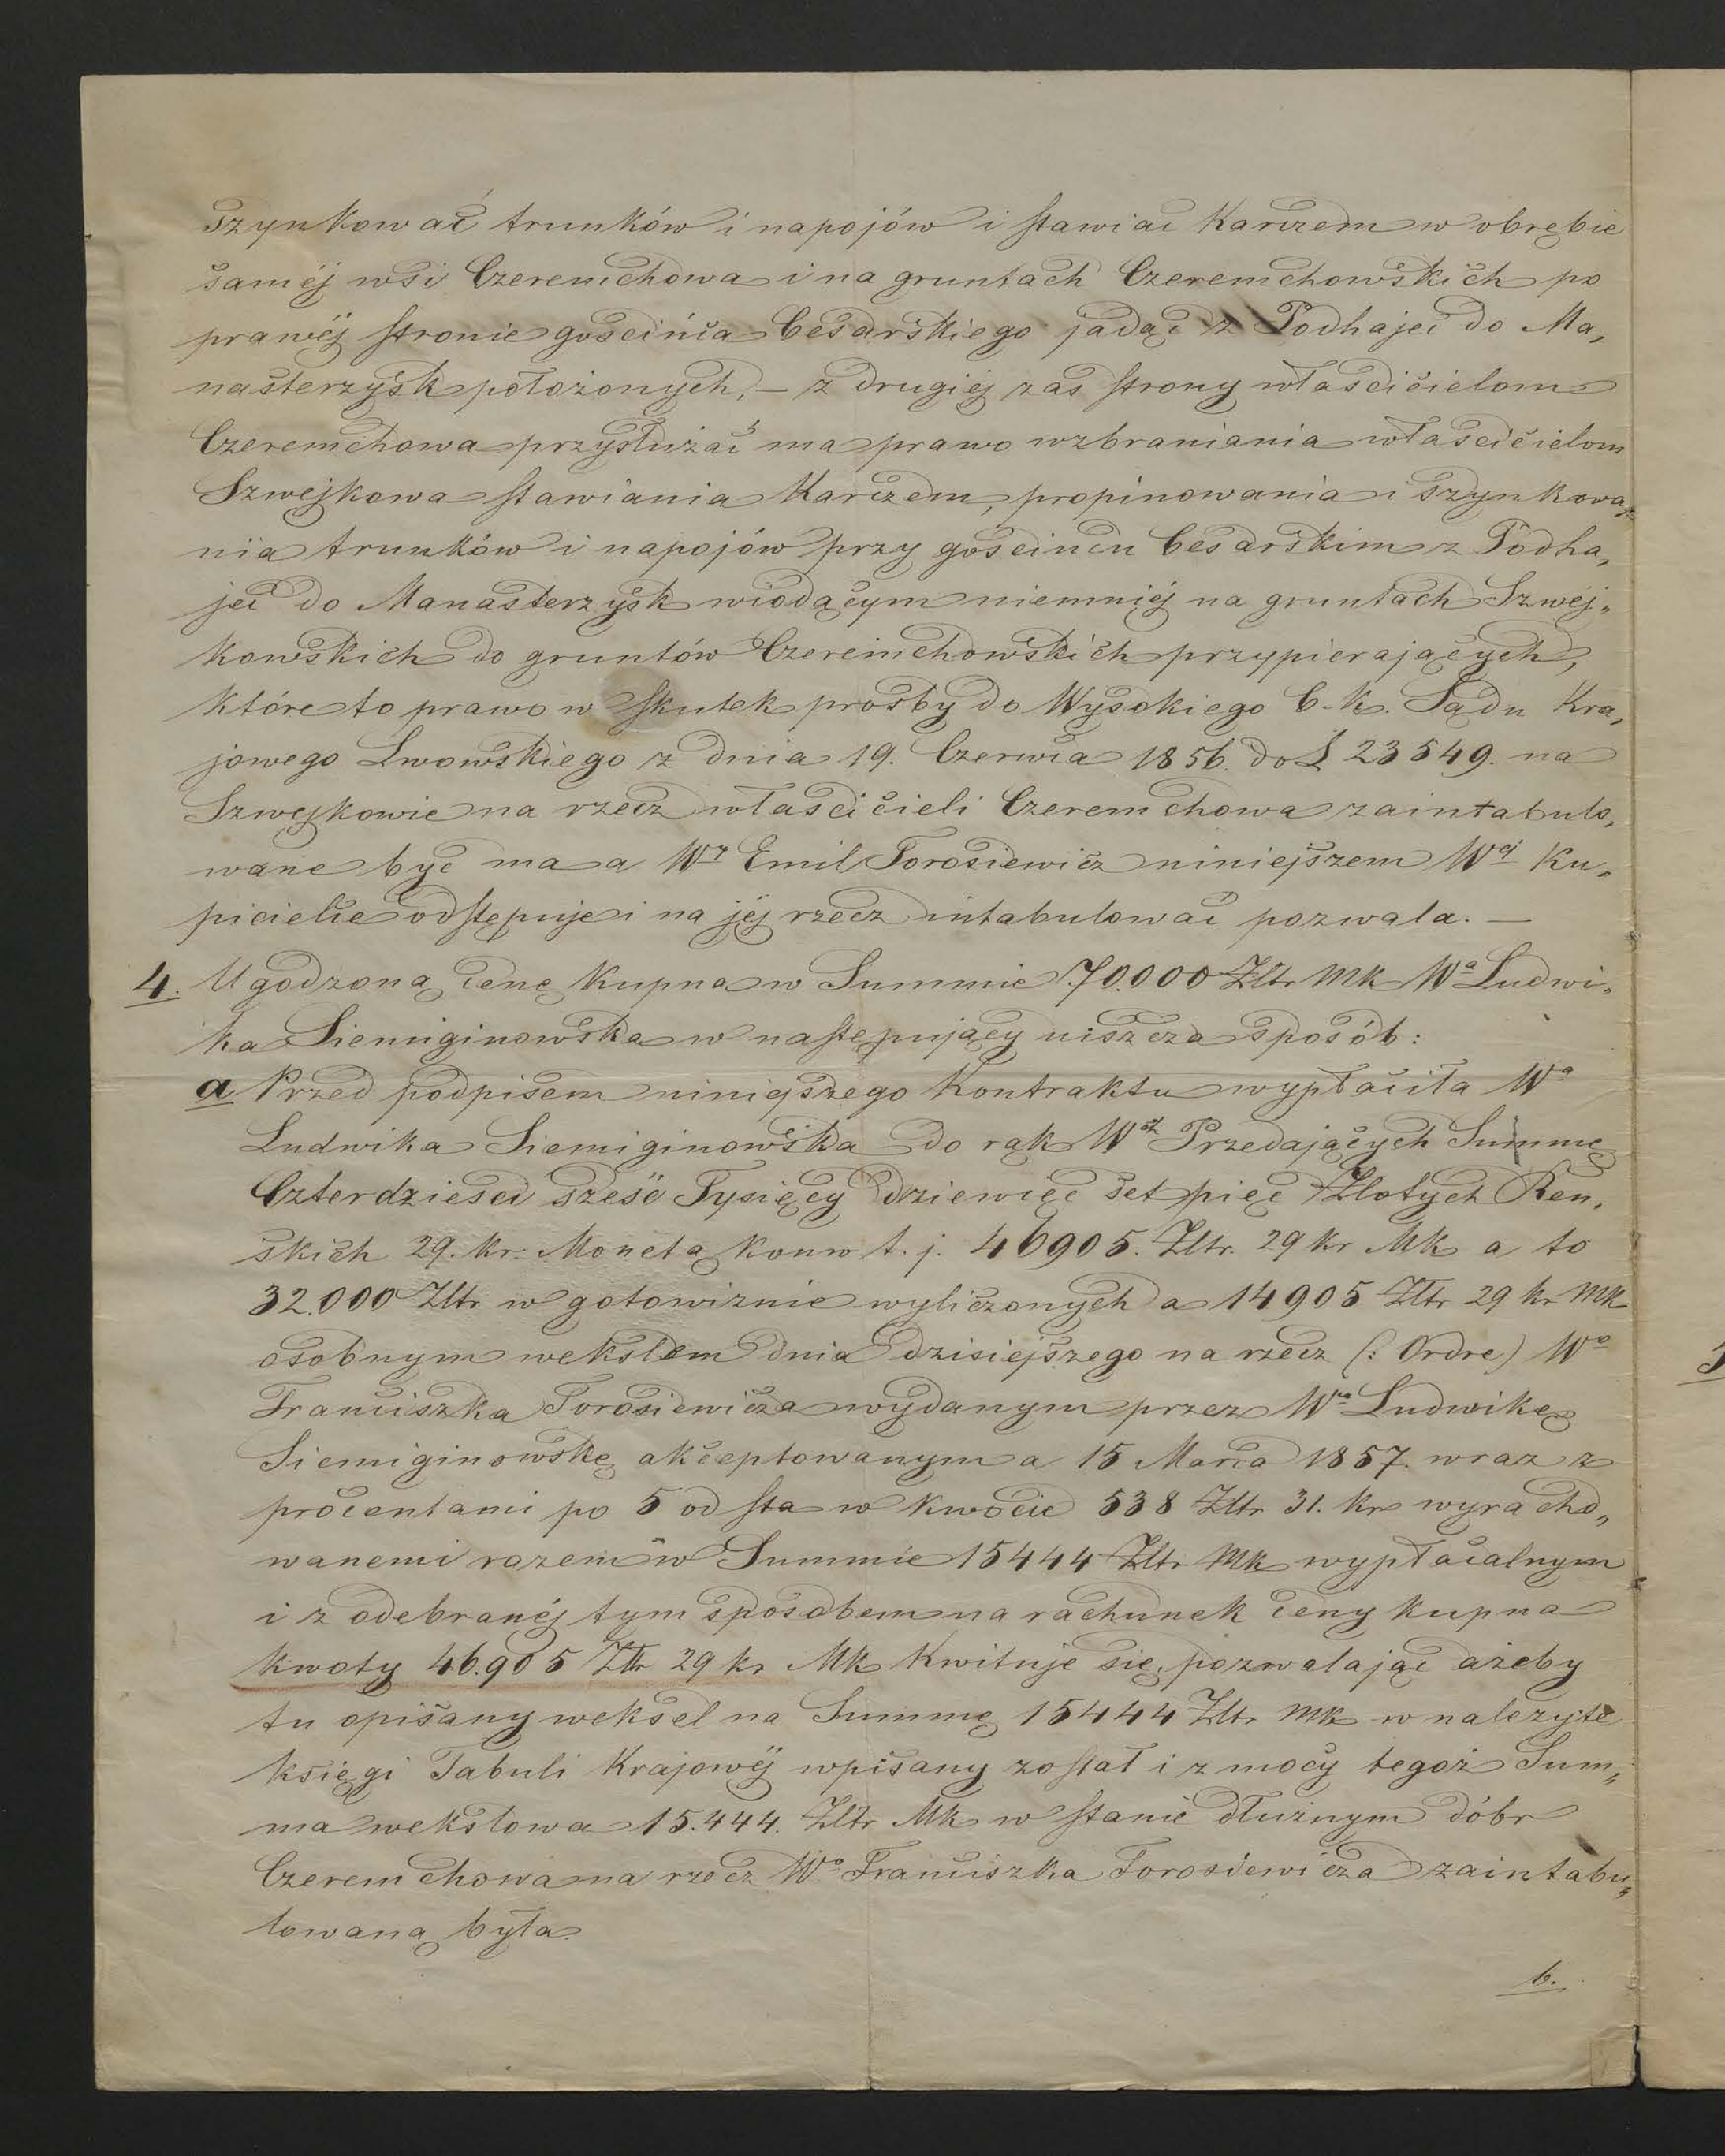 szynkować trunków i napojów i stawiać Karczem w obrębie
saméj wsi Czeremchowa i na gruntach Czeremchowskich po
prawéj stronie gościńca Cesarskiego jadąc z Podhajec do Ma„
nasterzysk położonych, — z drugiéj zaś strony właścicielom
Czeremchowa przysłużać ma prawo wzbraniania właścicielom
Szwejkowa stawiania Karczem, propinowania i szynkowa„
nia trunków i napojów przy gościńcu Cesarskim z Podha„
jec do Manasterzysk wiodącym niemniéj na gruntach Szwej„
kowskich do gruntów Czeremchowskich przypierających,
które to prawo w skutek prośby do Wysokiego C. K. Sądu Kra„
jowego Lwowskiego z dnia 19. Czerwca 1856. do L 23549. na
Szwejkowie na rzecz właścicieli Czeremchowa zaintabulo„
wane być ma a Wy Emil Torosiewicz niniejszem Wej Ku„
picielce odstępuje i na jéj rzecz intabulować pozwala. —
4. Ugodzoną cenę Kupna w Summie 70.000 Złtr Mk Wa Ludwi„
ka Siemiginowska w następujący uiszcza sposób:
a Przed podpisem niniejszego Kontraktu wypłaciła Wa
Ludwika Siemiginowska do rąk Wch Przedających Summę
Czterdzieści sześć Tysięcy dziewięć set pięć Złotych Ren„
skich 29. kr. Monetą konw t. j. 46905. Złtr. 29 kr Mk a to
32.000 Złtr w gotowiznie wyliczonych a 14905 Złtr 29 kr Mk
osobnym wekslem dnia dzisiejszego na rzecz (: Ordre) Wo
Franciszka Torosiewicza wydanym przez Wą Ludwikę
Siemiginowskę akceptowanym a 15 Marca 1857. wraz z
procentami po 5 od sta w kwocie 538 Złtr 31. kr wyracho„
wanemi razem w Summie 15444 Złtr Mk wypłacalnym
i z odebranéj tym sposobem na rachunek ceny kupna
kwoty 46.905 Złtr 29 kr Mk Kwituje się, pozwalając ażeby
tu opisany weksel na Summę 15444 Złtr Mk w należyte
księgi Tabuli Krajowéj wpisany został i z mocy tegoż Sum„
ma wekslowa 15.444. Złtr Mk w stanie dłużnym dóbr
Czeremchowa na rzecz Wo Franciszka Torosiewicza zaintabu„
lowaną była.
b.